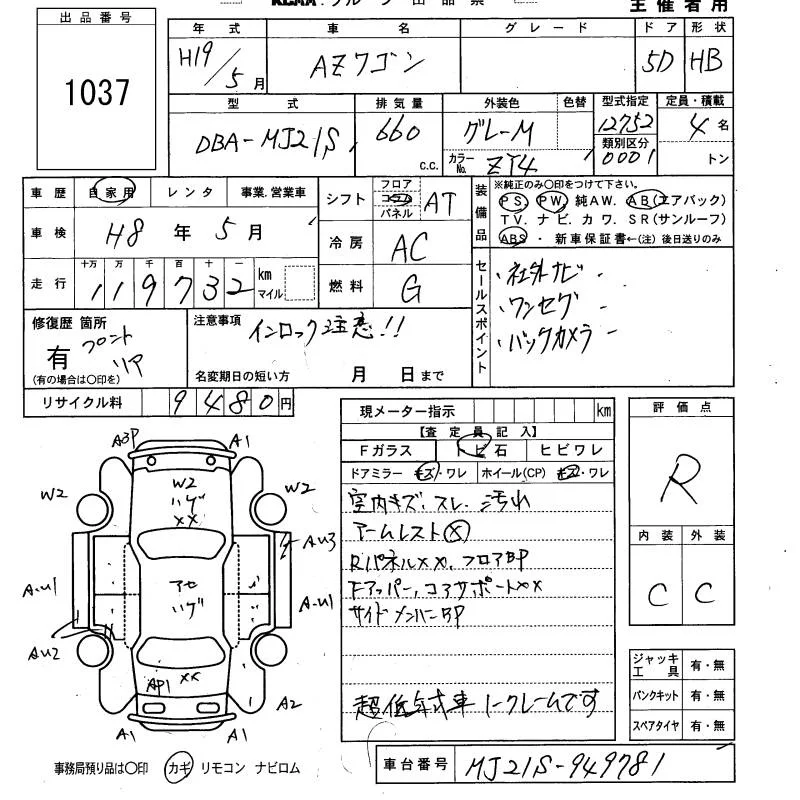 出品番号
1037
主催者用
年式 車名 グレード ドア 形状
H19/5月 AZワゴン 5D HB
型式 排気量 外装色 色替 型式指定 定員・積載
DBA-MJ21S 660 c.c. グレーM 12752 4名
カラーNo. ZY4 類別区分 0001 トン
車歴 自家用 レンタ 事業.営業車
車検 H8年5月
走行 十万 万 千 百 十 一
119732 km マイル
シフト フロア コラム パネル AT
冷房 AC
燃料 G
装備品 ※純正のみ〇印をつけて下さい。
PS PW 純AW. AB(エアバック)
TV. ナビ. カワ. SR(サンルーフ)
ABS ・ 新車保証書←(注) 後日送りのみ
セールスポイント
・社外ナビ
・ワンセグ
・バックカメラ
修復歴 箇所
有 フロント
リア
(有の場合は〇印を)
注意事項 インロック注意!!
名変期日の短い方 月 日まで
リサイクル料 9480円
現メーター指示 km
【査定員記入】
Fガラス トビ石 ヒビワレ
ドアミラー キズ・ワレ ホイール(CP) キズ・ワレ
室内キズ.スレ.汚れ
アームレスト×
Rパネル××.フロアBP
Fアッパー,コアサポート××
サイドメンバーBP
超低年式車 ノークレームです
評価点
R
内装 外装
C C
A3P A1
W2
ハゲ
××
W2 W2
AU3
アセ
ハゲ
A-U1 A-U1
AU2
AP1 ××
A2
A1 A1
ジャッキ工具 有・無
パンクキット 有・無
スペアタイヤ 有・無
事務局預り品は〇印 カギ リモコン ナビロム
車台番号 MJ21S-949781